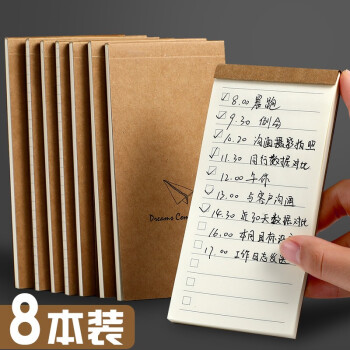 8.00 晨跑
9.30 例会
10.20 沟通摄影拍照
11.30 同行数据对比
12.00 午休
13.00 与客户沟通
14.30 近30天数据对比
16.00 本周目标
17.00 工作日志发送
Dreams Com
8本装